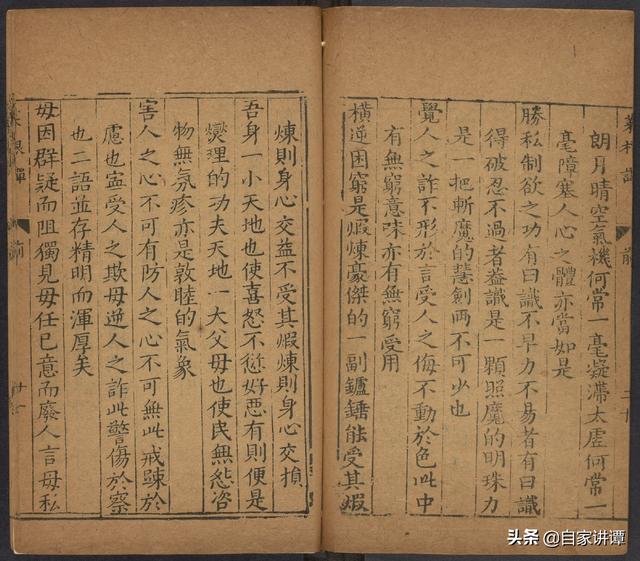 菜根譚
前
朗月晴空氣機何常一毫凝滯太虛何常一
毫障塞人心之體亦當如是
勝私制欲之功有曰識不早力不易者有曰識
得破忍不過者葢識是一顆照魔的明珠力
是一把斬魔的慧劍兩不可少也
覺人之詐不形於言受人之侮不動於色此中
有無窮意味亦有無窮受用
橫逆困窮是煆煉豪傑的一副鑪錘能受其煆
煉則身心交益不受其煆煉則身心交損
吾身一小天地也使喜怒不愆好惡有則便是
燮理的功夫天地一大父母也使民無怨咨
物無氛疹亦是敦睦的氣象
害人之心不可有防人之心不可無此戒踈於
慮也寍受人之欺毋逆人之詐此警傷於察
也二語並存精明而渾厚矣
毋因群疑而阻獨見毋任已意而廢人言毋私
菜根譚
前
头条 @自家讲谭